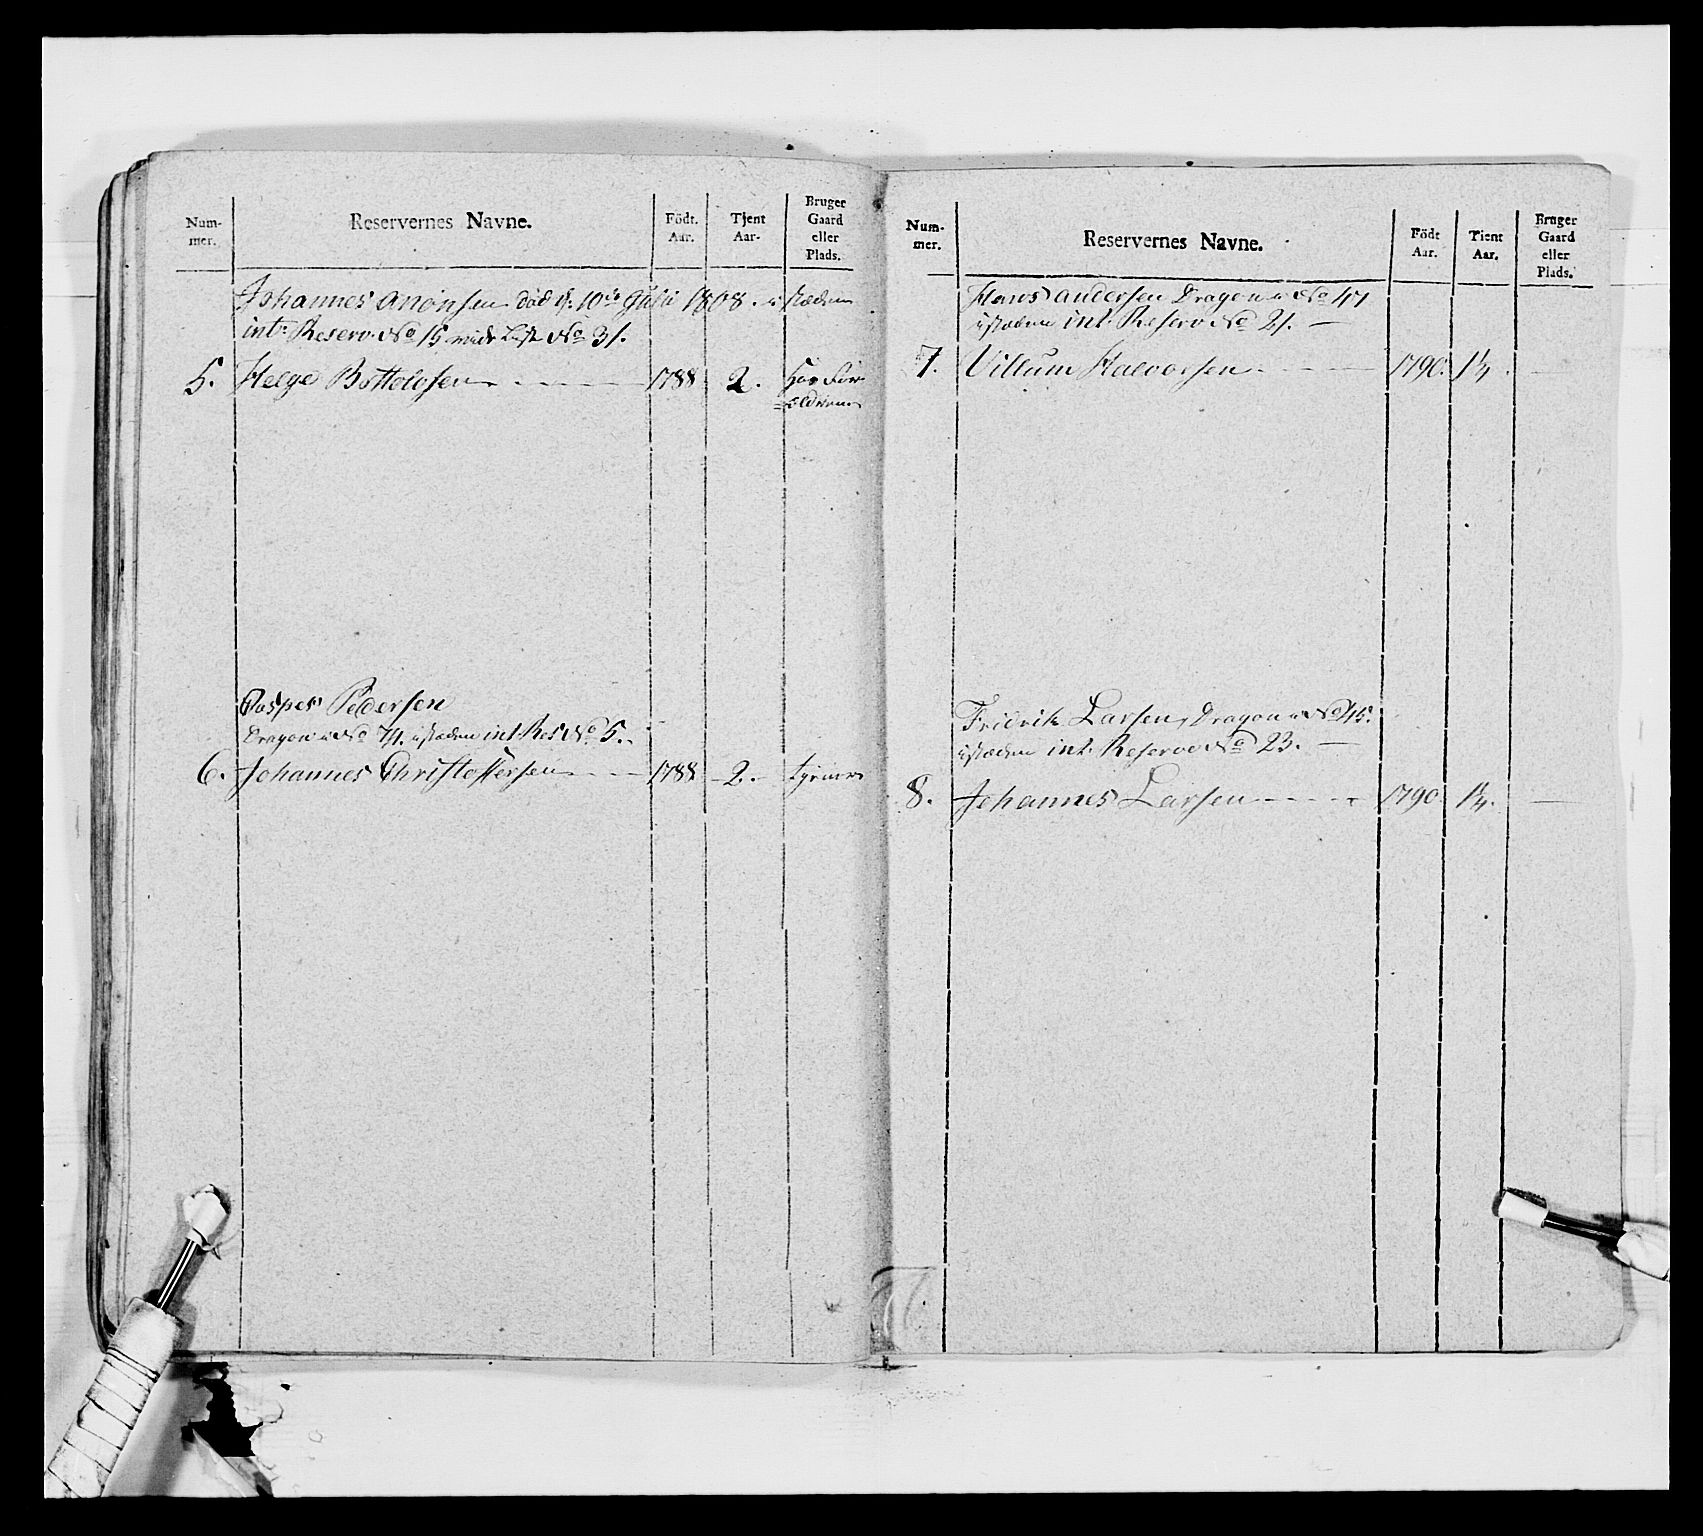 Num-
mer.
Reservernes Navne.
Födt.
Aar.
Tjent
Aar.
Bruger
Gaard
eller
Plads.
Johannes Anonsen död d: 10de Julii 1808. i stæden
int: Reserv No 15 vide Liste No 31.
5. Helge Bottolvsen 1788 2. Hos For-
ældrene
Jasper Pedersen
Dragon No 71. istæden int: Res No 5.
6. Johannes Christoffersen 1788 2. tjener
Num-
mer.
Reservernes Navne.
Födt
Aar.
Tient
Aar.
Bruger
Gaard
eller
Plads.
Hans Andersen Dragon No 47
istæden int. Reserv No 21.
7. Villum Halvorsen 1790. 1¼
Fridrik Larsen, Dragon No 45.
istæden int. Reserve No 23.
8. Johannes Larsen 1790 1¼.